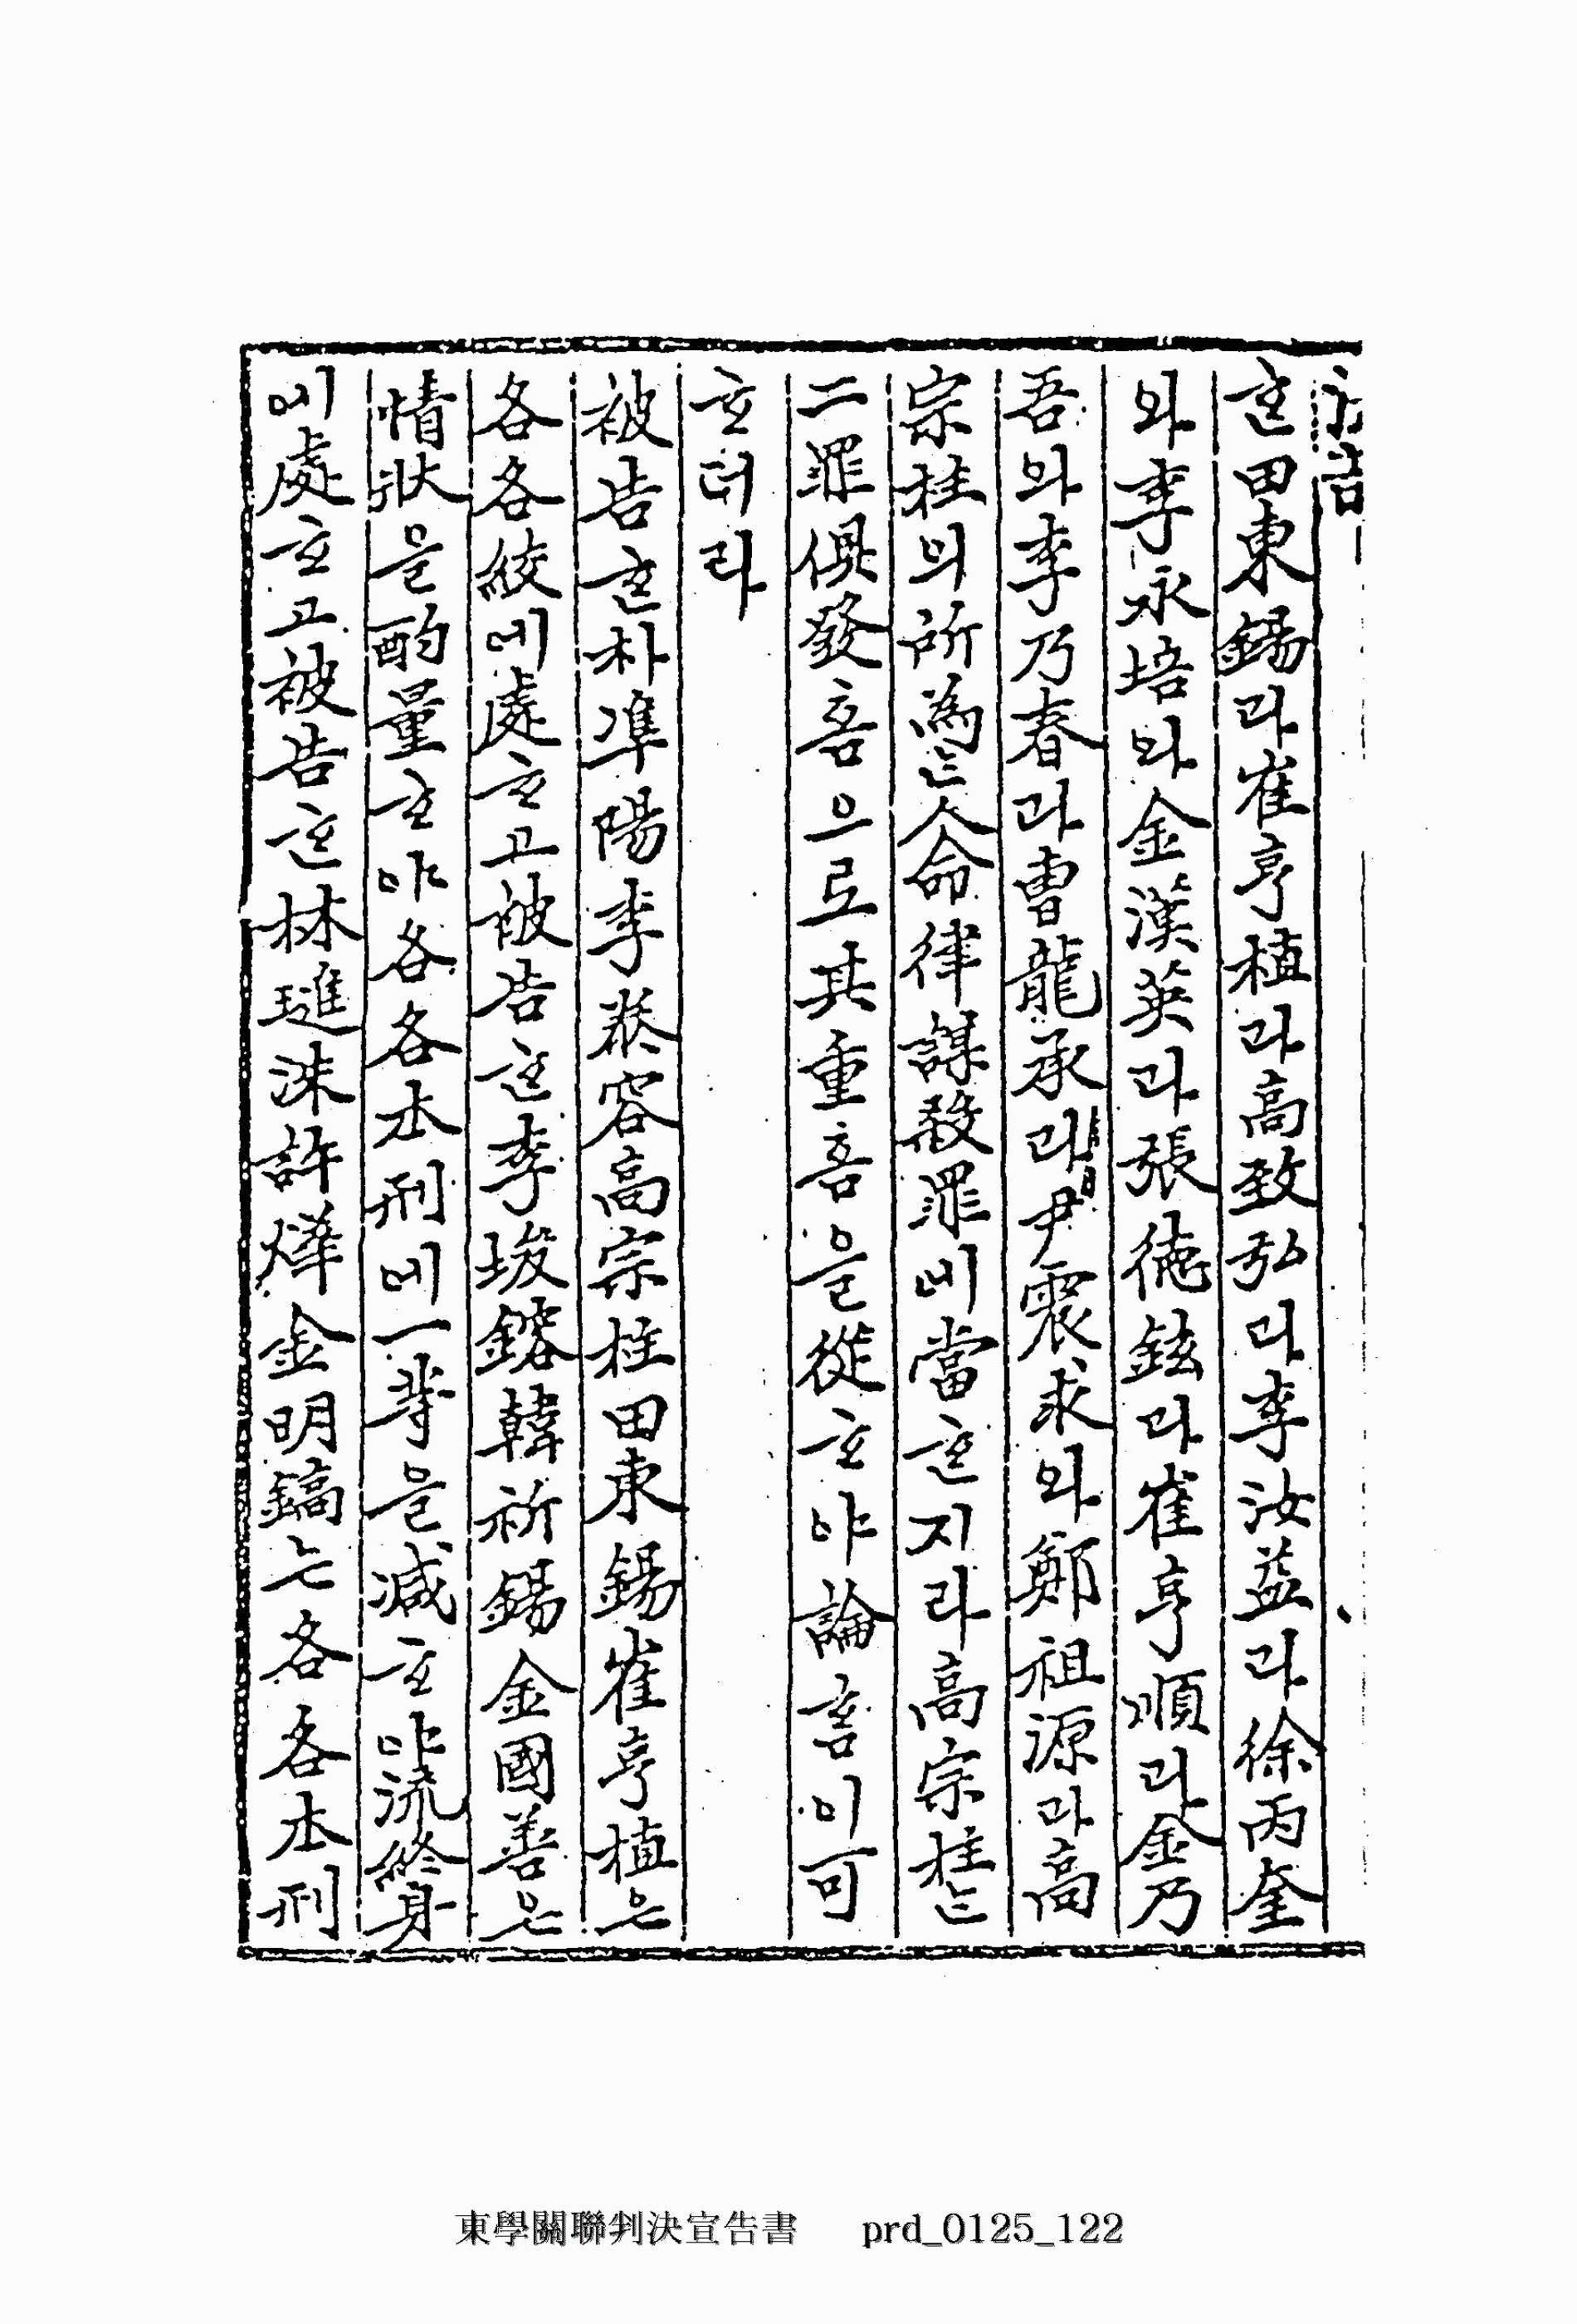 ᄒᆞᆫ田東錫과崔亨植과高致弘과李汝益과徐丙奎
와李永培와金漢英과張德鉉과崔亨順과金乃
吾와李乃春과曺龍承과尹震求와鄭祖源과高
宗柱의所爲ᄂᆞᆫ人命律謀殺罪에當ᄒᆞᆫ지라高宗柱ᄂᆞᆫ
二罪俱發홈으로其重홈을從ᄒᆞ야論홈이可
ᄒᆞ더라
被告ᄒᆞᆫ朴準陽李泰容高宗柱田東錫崔亨植은
各各絞에處ᄒᆞ고被告ᄒᆞᆫ李埈鎔韓祈錫金國善은
情狀을酌量ᄒᆞ야各各本刑에一等을減ᄒᆞ야流終身
에處ᄒᆞ고被告ᄒᆞᆫ林璡洙許燁金明鎬ᄂᆞᆫ各各本刑
東學關聯判決宣告書 prd_0125_122